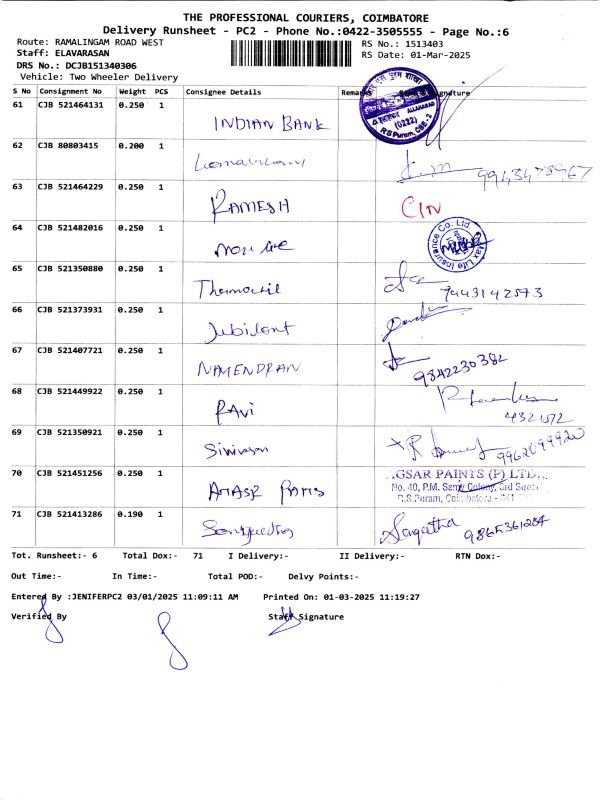 THE PROFESSIONAL COURIERS, COIMBATORE
Delivery Runsheet - PC2 - Phone No.:0422-3505555 - Page No.:6
Route: RAMALINGAM ROAD WEST
RS No.: 1513403
Staff: ELAVARASAN
RS Date: 01-Mar-2025
DRS No.: DCJB151340306
Vehicle: Two Wheeler Delivery
S No Consignment No Weight PCS Consignee Details Remarks Signature
61 CJB 521464131 0.250 1 INDIAN BANK
ALLAHABAD
(0222)
RS Puram, CBE - 2
62 CJB 80803415 0.200 1
63 CJB 521464229 0.250 1 RAMESH CIN
64 CJB 521482016 0.250 1
Max Life Insurance Co. Ltd.
65 CJB 521350880 0.250 1 7443142573
66 CJB 521373931 0.250 1 Jubilant
67 CJB 521407721 0.250 1 NAMENDRAN 9842230382
68 CJB 521449922 0.250 1 RAVI
69 CJB 521350921 0.250 1
70 CJB 521451256 0.250 1 GSAR PAINTS (P) LTD.,
No. 40, P.M. Samy Colony, 3rd Street
R.S.Puram, Coimbatore -
71 CJB 521413286 0.190 1 Sangeetha 9865361284
Tot. Runsheet:- 6 Total Dox:- 71 I Delivery:- II Delivery:- RTN Dox:-
Out Time:- In Time:- Total POD:- Delvy Points:-
Entered By :JENIFERPC2 03/01/2025 11:09:11 AM Printed On: 01-03-2025 11:19:27
Verified By Staff Signature